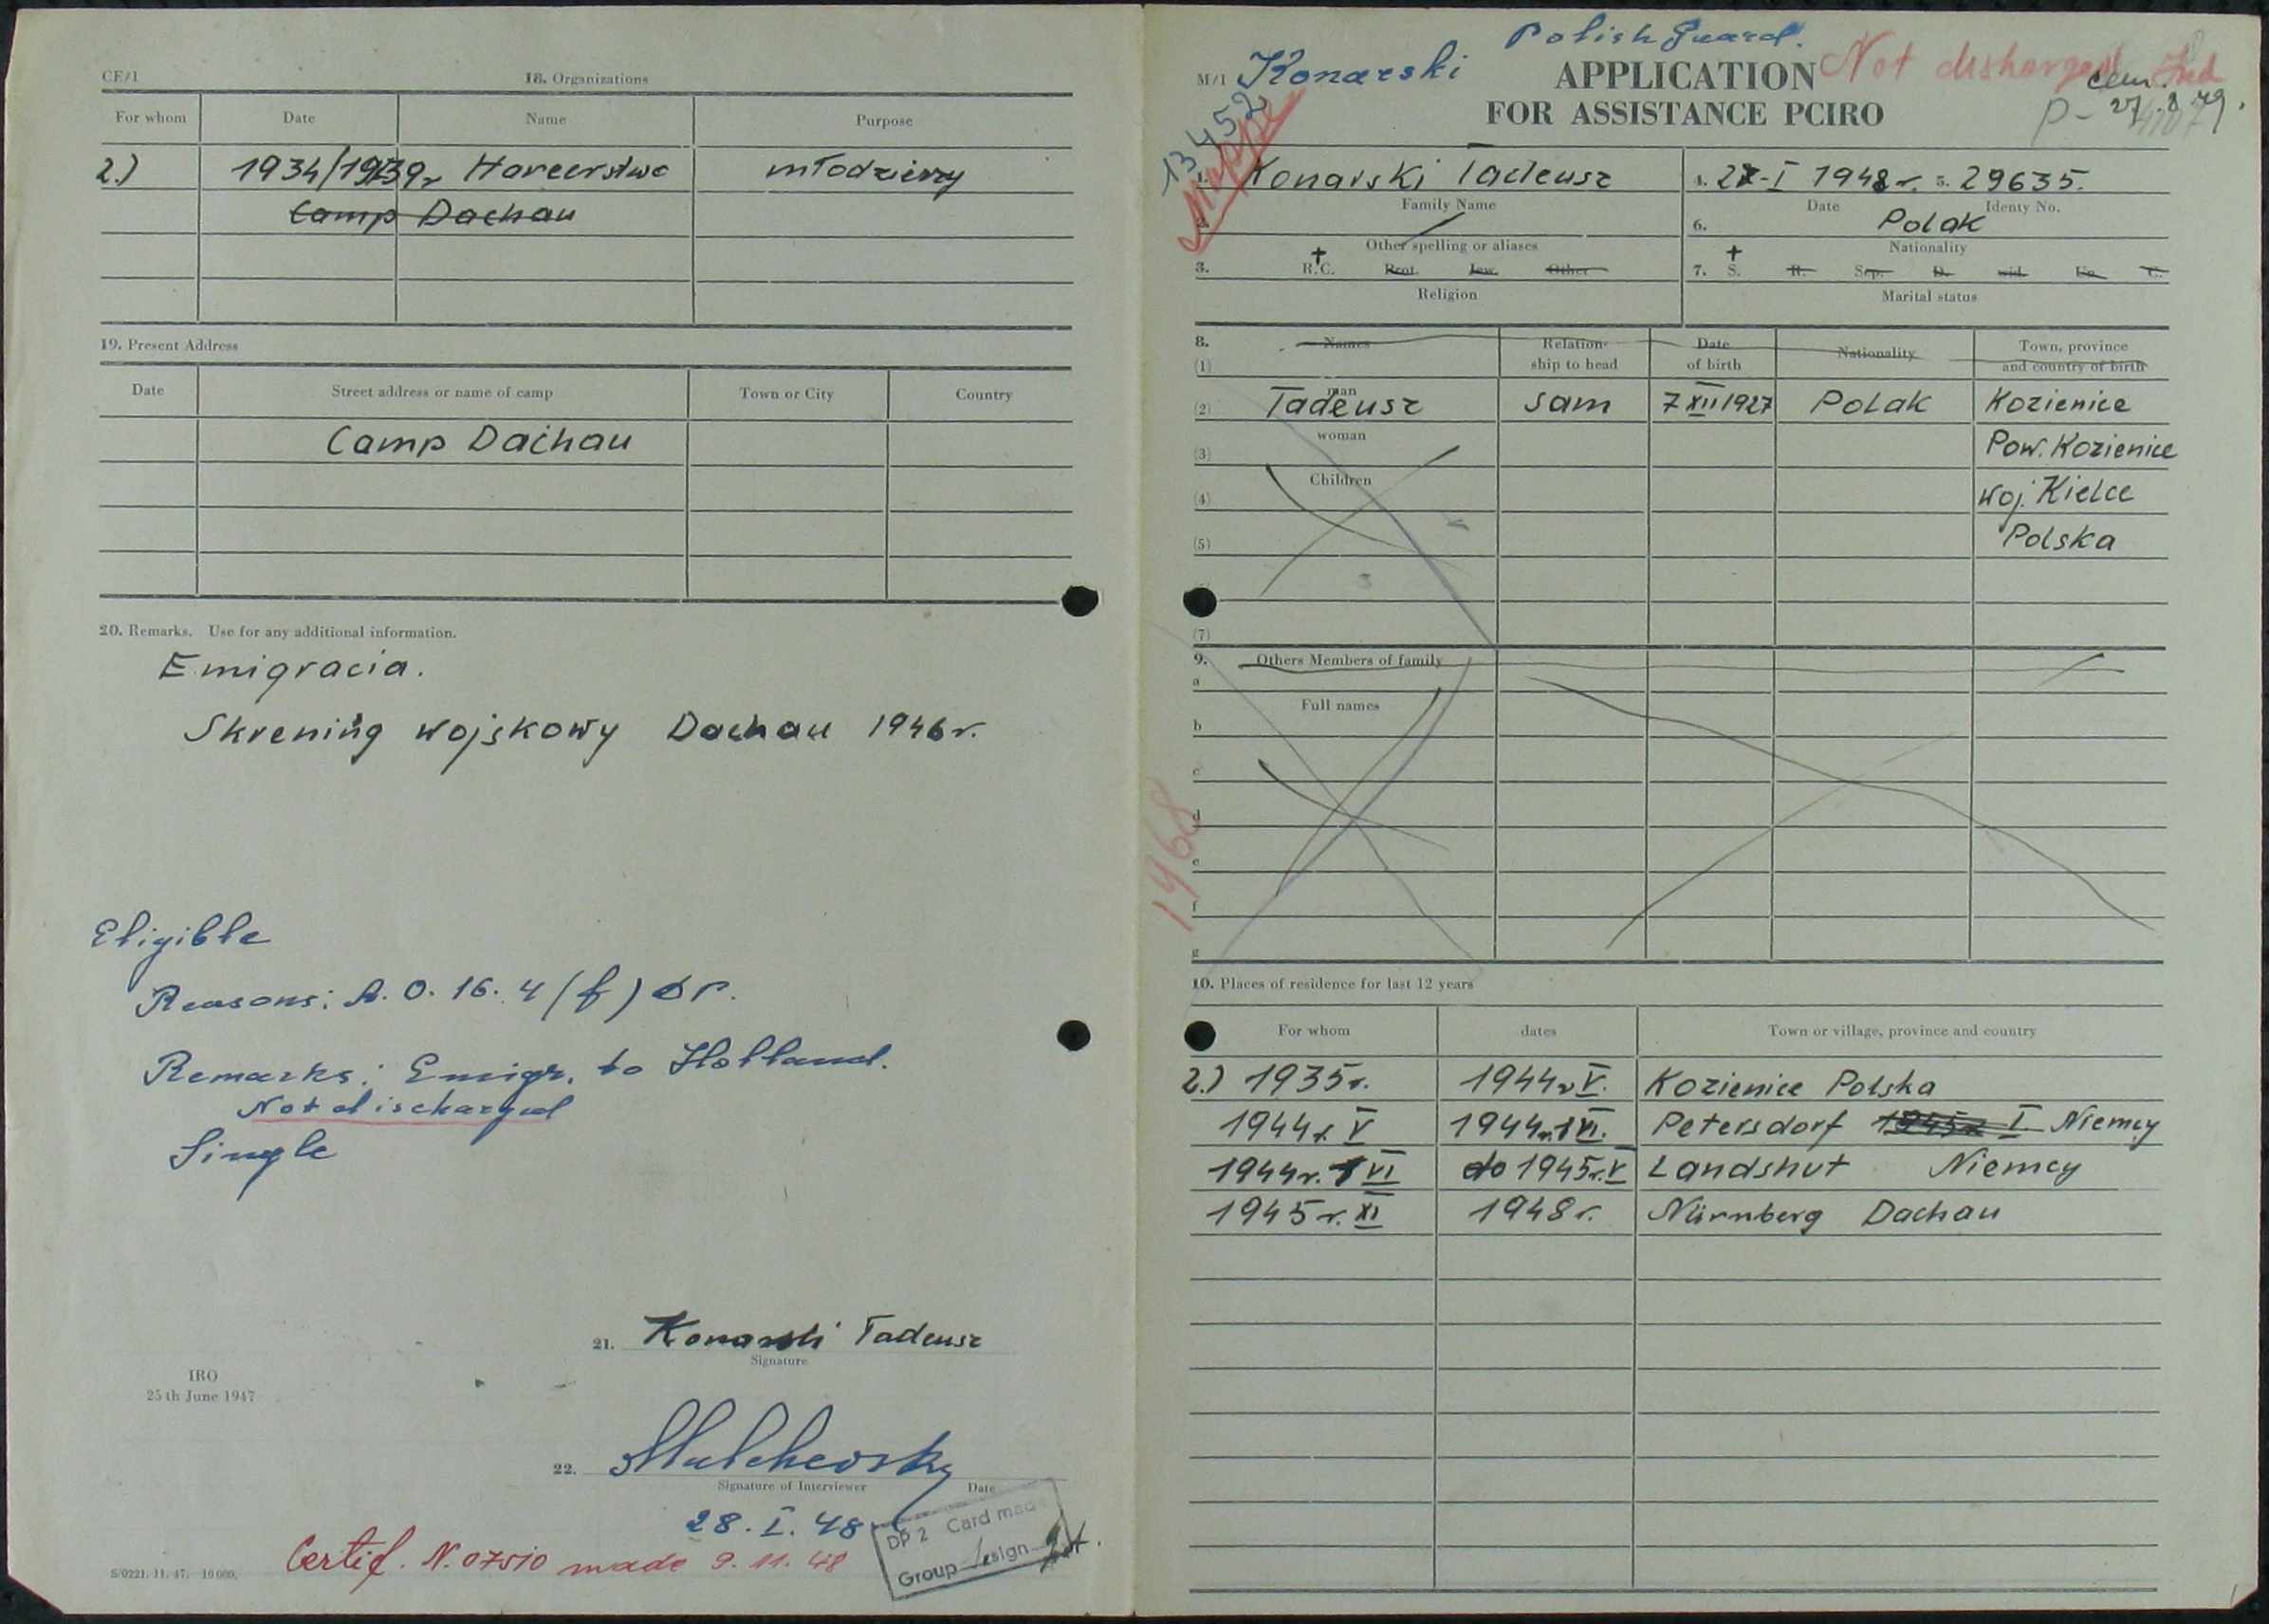 CE/1 18. Organizations
For whom Date Name Purpose
2.) 1934/1939r Harcerstwo młodzieży
Camp Dachau
19. Present Address
Date Street address or name of camp Town or City Country
Camp Dachau
20. Remarks. Use for any additional information.
Emigracia.
Skrening wojskowy Dachau 1946r.
Eligible
Reasons: A. O. 16. 4 (f) DP.
Remarks: Emigr. to Holland.
Not discharged
Single
21. Konarski Tadeusz
Signature
IRO
25 th June 1947
22.
Signature of Interviewer Date
28. I. 48
DP 2 Card mad
Group sign
Certif. N. 07510 made 9. 11. 48
S/0221. 11. 47. 10 000.
Polish Guard.
M/1 Konarski APPLICATION Not discharged
FOR ASSISTANCE PCIRO P- 27.8.49.
13452
1. Konarski Tadeusz 4. 28-I 1948 r. 5. 29635.
Family Name Date Identy No.
2. 6. Polak
Other spelling or aliases Nationality
3. R.C. Prot. Jew. Other 7. S. R. Sep. D. wid. Un. C.
Religion Marital status
8. Names Relation- Date Nationality Town, province
(1) ship to head of birth and country of birth
man
(2) Tadeusz sam 7 XII 1927 Polak Kozienice
woman
(3) Pow. Kozienice
Children
(4) woj. Kielce
(5) Polska
(7)
9. Others Members of family
a
Full names
b
c
d
e
f
g
1468
10. Places of residence for last 12 years
For whom dates Town or village, province and country
2.) 1935r. 1944r V. Kozienice Polska
1944r V 1944r. VI. Petersdorf 1945r I Niemcy
1944r. VI do 1945r. V Landshut Niemcy
1945r. XI 1948r. Nürnberg Dachau